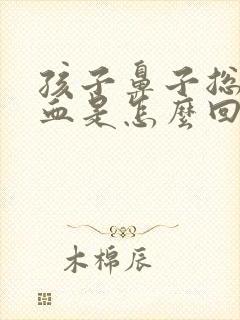 孩子鼻子总
血是怎麽回
木棉辰